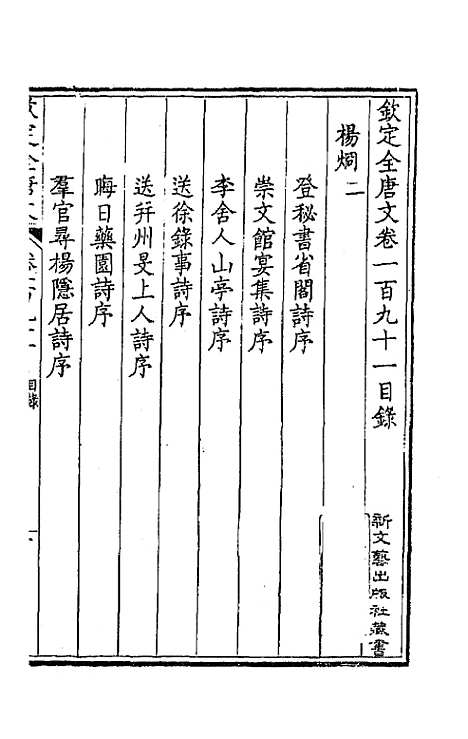 欽定全唐文卷一百九十一目錄
楊烱二
登秘書省閣詩序
崇文館宴集詩序
李舍人山亭詩序
送徐錄事詩序
送幷州旻上人詩序
晦日藥園詩序
羣官尋楊隱居詩序
欽定全唐文
目錄
新文藝出版社藏書